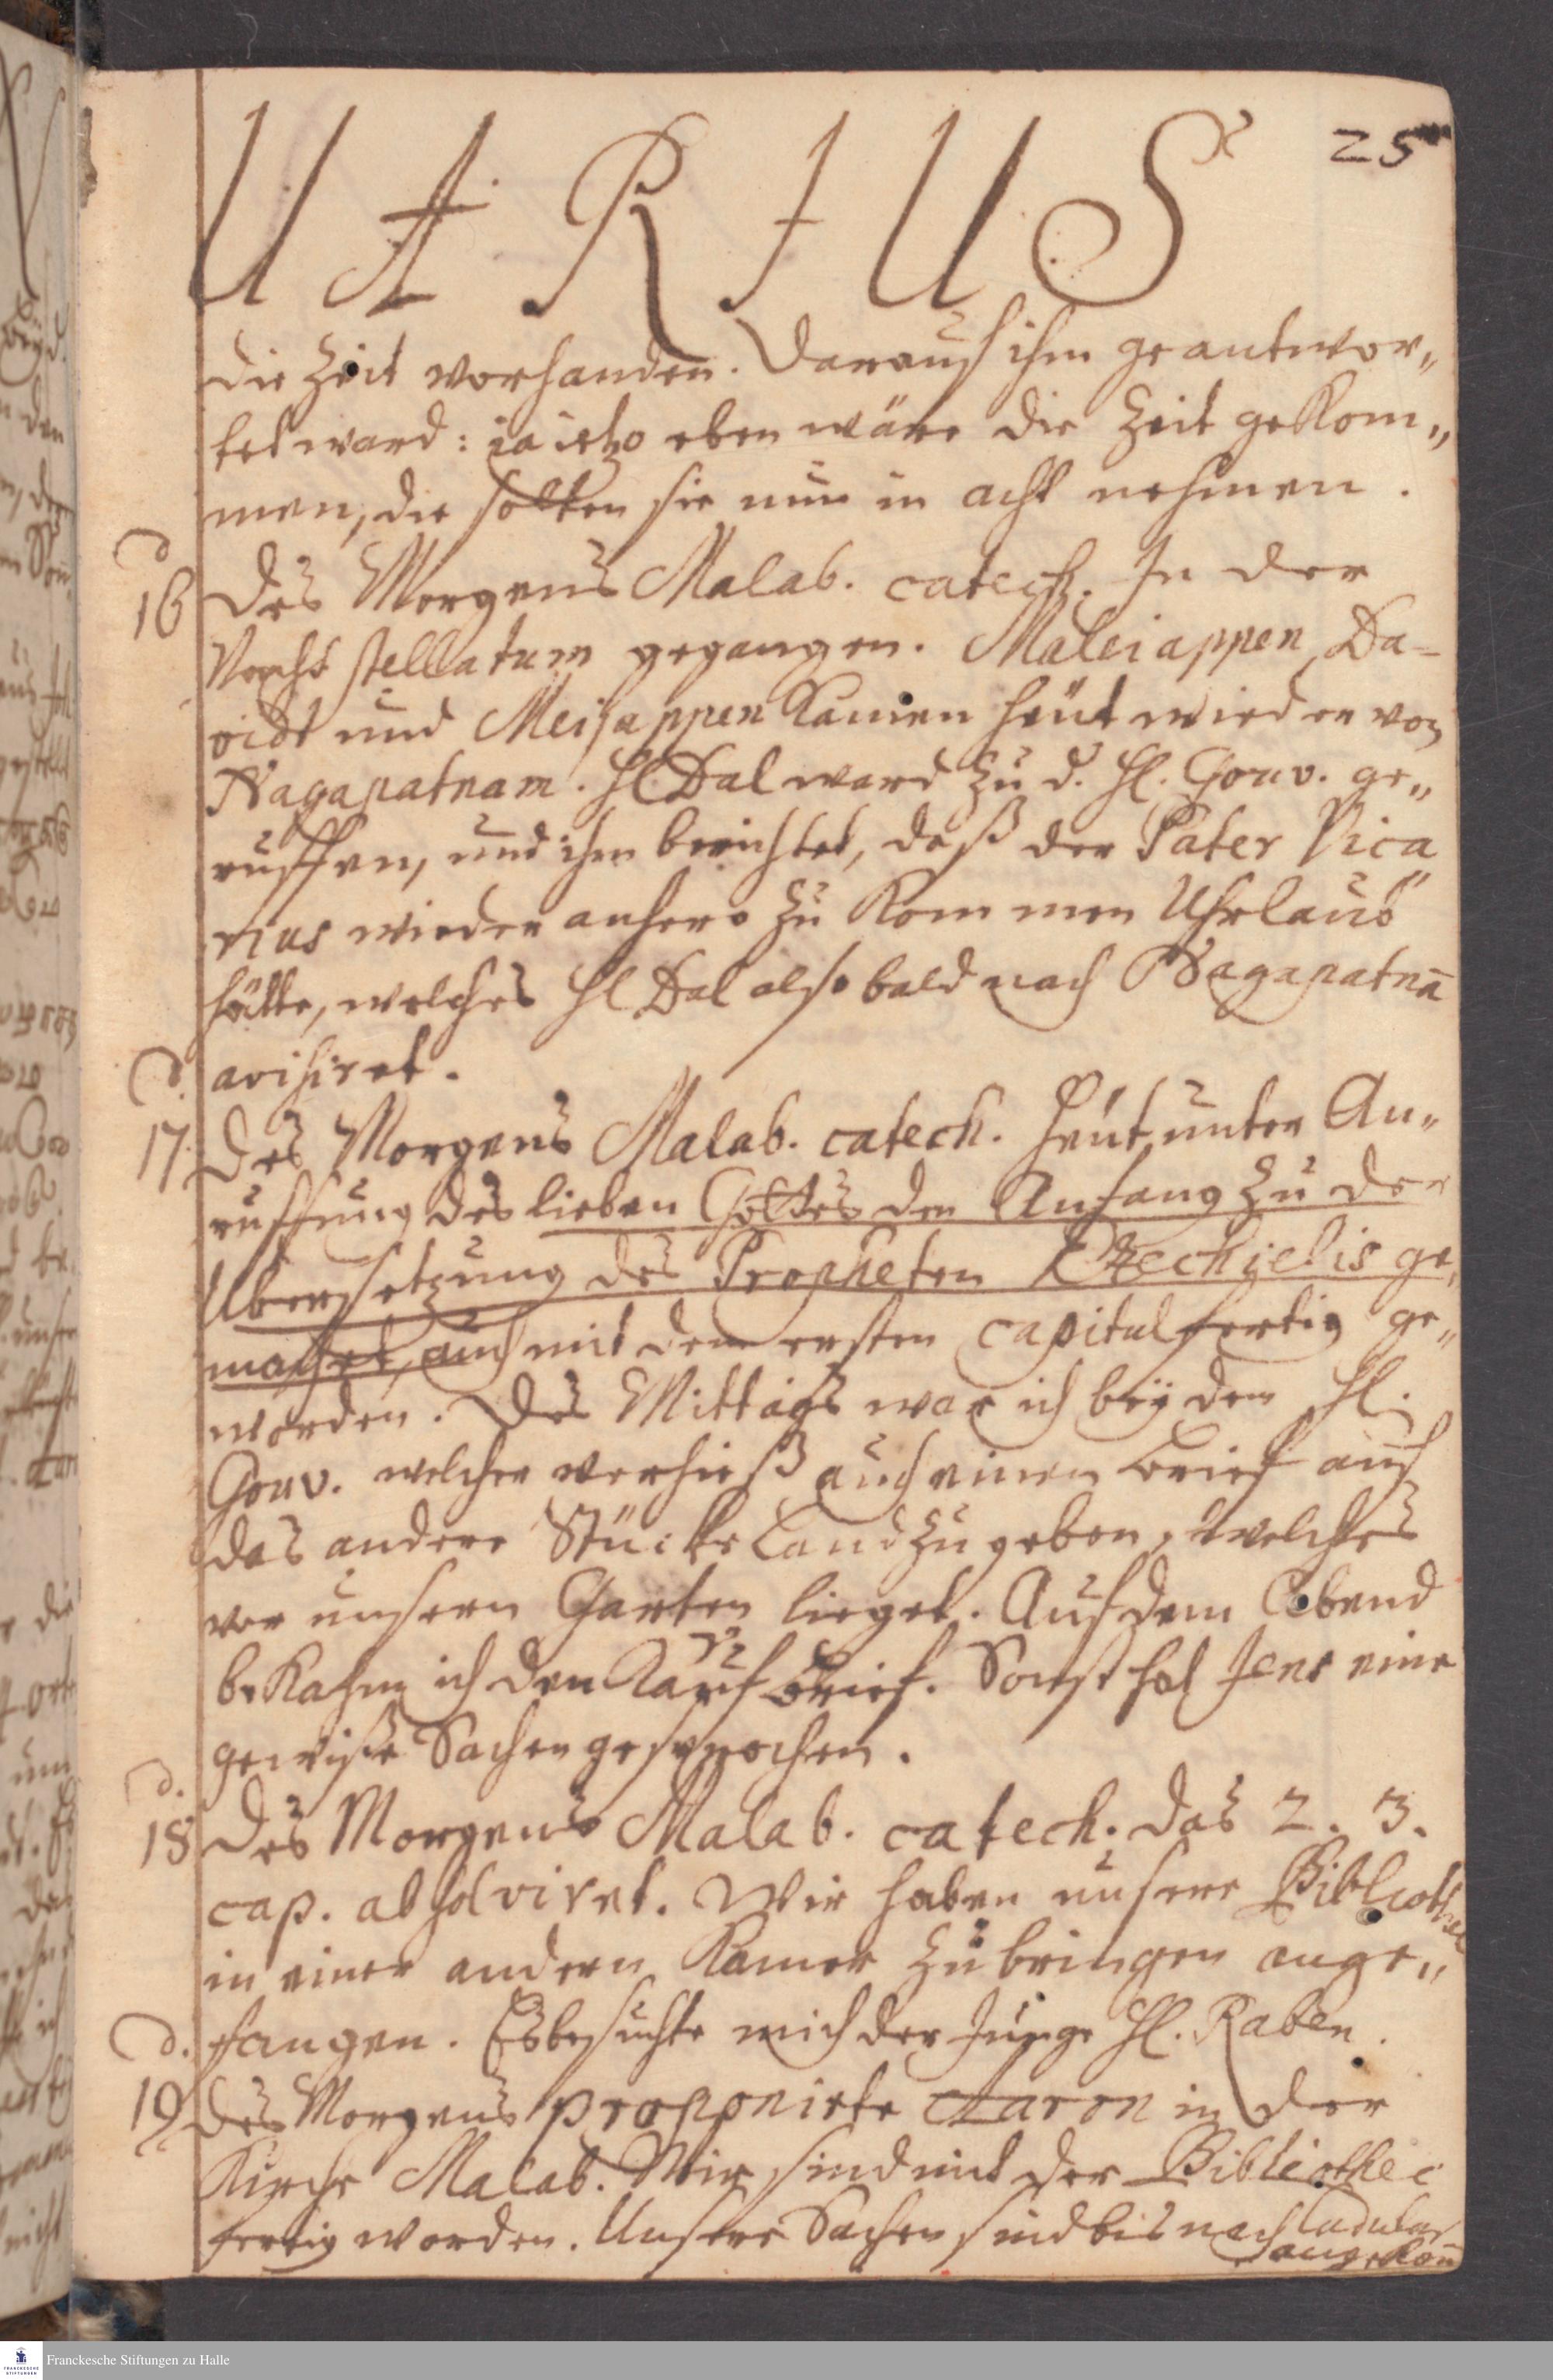 25
UARIUS
die Zeit vorhanden. Darauf ihm geantwor„
tet ward: ja ietzo eben wäre die Zeit gekom„
men, die solten sie nun in acht nehmen.
d
16 Des Morgens Malab. catech. In der
Nacht stellatum gegangen. Maleiappen, Da-
vidt und Meijappen kamen heut wieder von
Nagapatnam. Hl Dal ward zu d. Hl. Gouv. ge„
ruffen, und ihm berichtet, daß der Pater Vica„
rius wieder anhero zu kommen Uhrlaub
hätte, welches Hl Dal also bald nach Nagapatnā
avisiret.
d.
17. Des Morgens Malab. catech. Heut unter An„
ruffung des lieben Gottes den Anfang zu der
Ubersetzung des Propheten Ezechielis ge„
machet, auch mit dem ersten capitul fertig ge„
worden. Des Mittags war ich bey dem Hl.
Gouv. welcher verhieß auch einen brief auf
das andere Stücke Land zu geben, welches
vor unsern Garten lieget. Auf dem Abend
bekahm ich den Kauf brief. Sonst hat Jene eine
gewiße Sachen gesprochen.
d.
18 Des Morgens Malab. catech. das 2. 3.
cap. absolviret. Wir haben unsere Bibliothec
in einer andern Kamer zu bringen ange„
fangen. Es besuchte mich der junge Hl. Raben.
d.
19 Des Morgens proponirte Aaron in der
Kirche Malab. Wir sind mit der Bibliothec
fertig worden. Unsere Sachen sind bis nach Cadular
angekom̄
Franckesche Stiftungen zu Halle